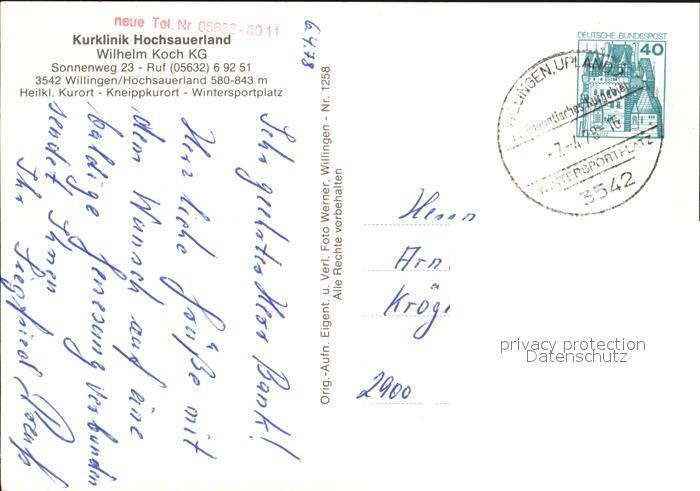 neue Tel. Nr 05632-6011
Kurklinik Hochsauerland
Wilhelm Koch KG
Sonnenweg 23 - Ruf (05632) 6 92 51
3542 Willingen/Hochsauerland 580-843 m
Heilkl. Kurort - Kneippkurort - Wintersportplatz
6.4.78
Sehr geehrter Herr Bank!
Herzliche Grüße mit
dem Wunsch auf eine
baldige Genesung verbunden
sendet Ihnen
Ihr Siegfried
Orig.-Aufn. Eigent. u. Verl. Foto Werner, Willingen - Nr. 1258
Alle Rechte vorbehalten
DEUTSCHE BUNDESPOST
40
WILLINGEN, UPLAND
Kurgebiet
-7.-4.78-16
WINTERSPORTPLATZ
3542
Herrn
Arn
Kröge
2900
privacy protection
Datenschutz